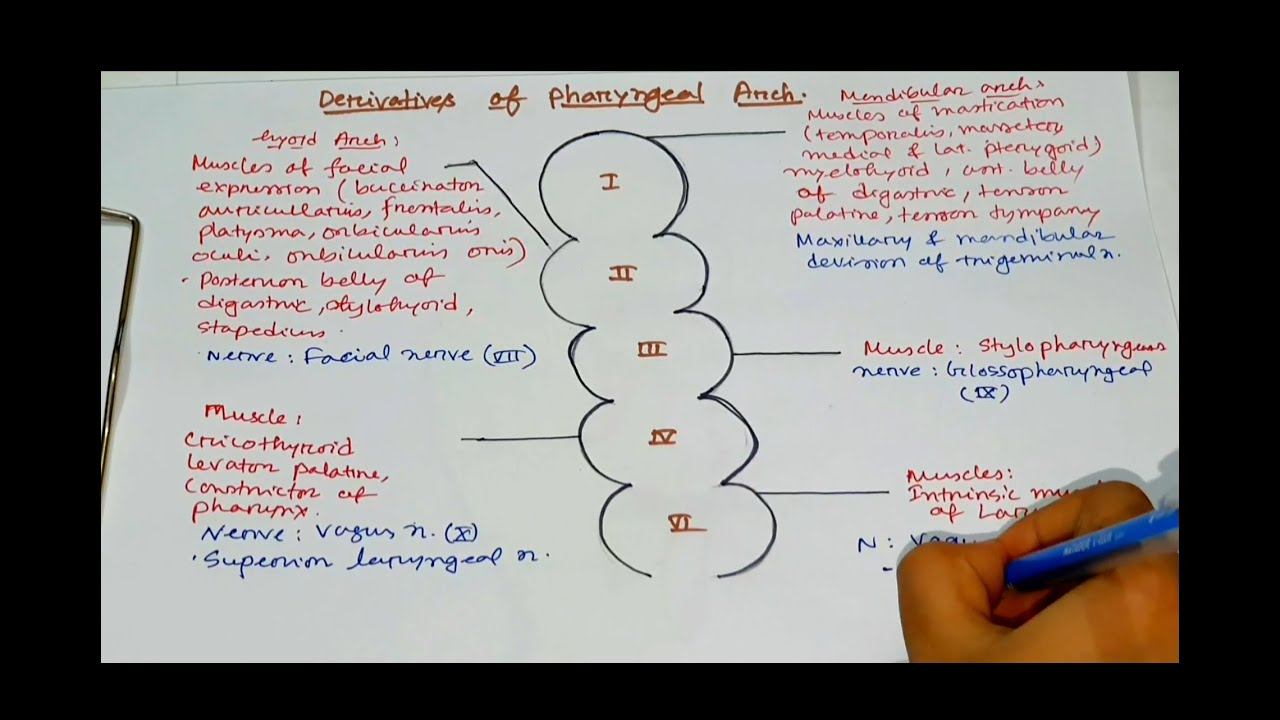 Derivatives of Pharyngeal Arch.
hyoid Arch:
Muscles of facial
expression (buccinator
auricullaris, frontalis,
platysma, orbicularis
oculi, orbicularis oris)
• Posterior belly of
digastric, stylohyoid,
stapedius.
Nerve: Facial nerve (VII)
Muscle:
Cricothyroid
levator palatine,
Constrictor of
pharynx.
Nerve: Vagus n. (X)
• Superior laryngeal n.
I
II
III
IV
VI
Mandibular arch:
Muscles of mastication
(temporalis, masseter,
medial & lat. pterygoid)
myelohyoid, ant. belly
of digastric, tensor
palatine, tensor tympany
Maxillary & mandibular
devision of trigeminal n.
Muscle: Stylopharyngeus
nerve: Glossopharyngeal
(IX)
Muscles:
Intrinsic
of
N:
-